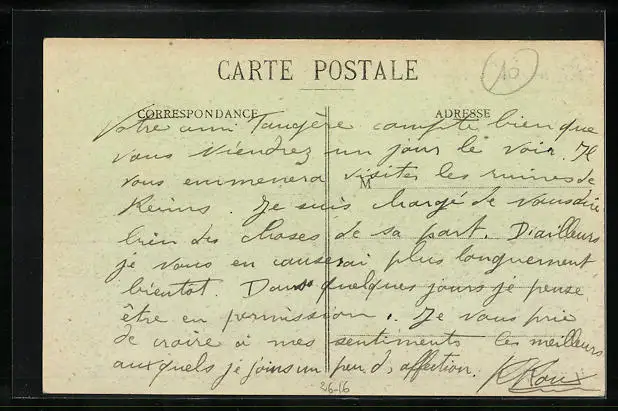 CARTE POSTALE
10
CORRESPONDANCE
ADRESSE
Votre ami Taugère compte bien que
vous viendrez un jour le voir. Il
vous emmenera visiter les ruines de
M
Reims. Je suis chargé de vous dire
bien des choses de sa part. D'ailleurs
je vous en causerai plus longuement
bientot. Dans quelques jours je pense
être en permission. Je vous prie
de croire à mes sentiments les meilleurs
auxquels je joins un peu d'affection.
26-16